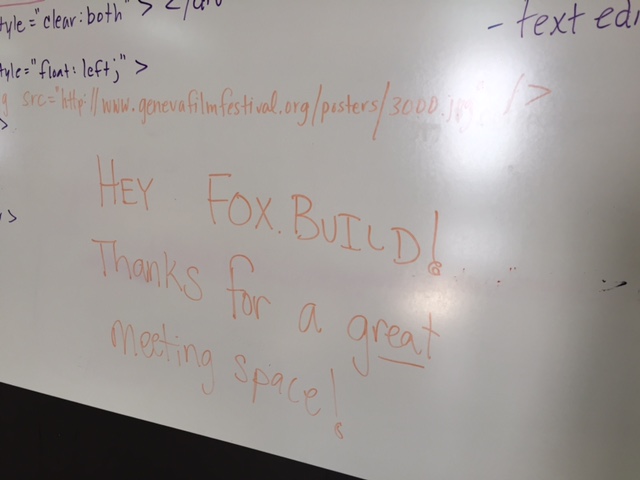 style="clear:both" >
- text edi
style="float:left;" >
src="http://www.genevafilmfestival.org/posters/3000.jpg" />
>
HEY FOX.BUILD!
>
Thanks for a great
meeting space!